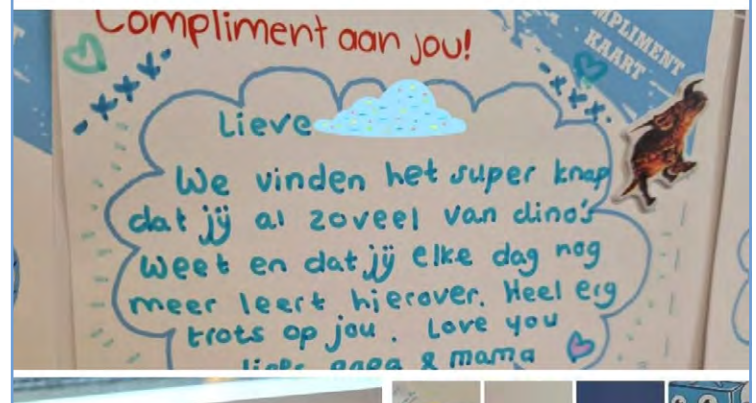 Compliment aan jou!
COMPLIMENT
KAART
Lieve
We vinden het super knap
dat jij al zoveel van dino's
weet en dat jij elke dag nog
meer leert hierover. Heel erg
trots op jou. Love you
liefs papa & mama